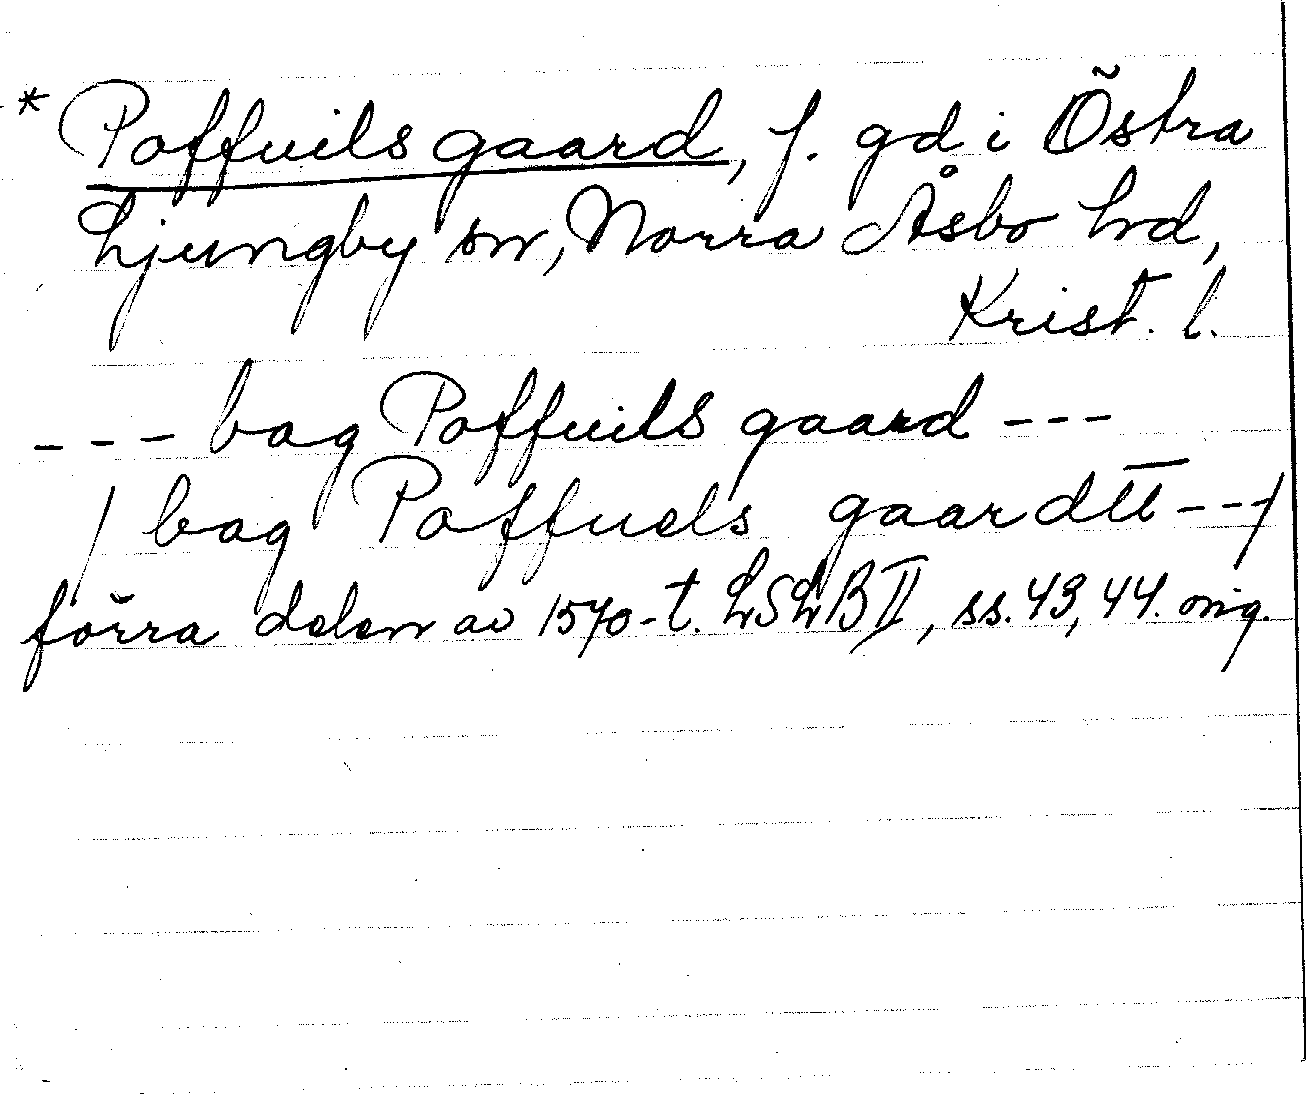 * Poffuils gaard, f. gd i Östra
Ljungby sn, Norra Åsbo hd,
Krist. l.
--- bag Poffuils gaard ---
/ bag Poffuels gaardtt ---/
förra delen av 1570-t. LSLB II, ss. 43, 44. orig.